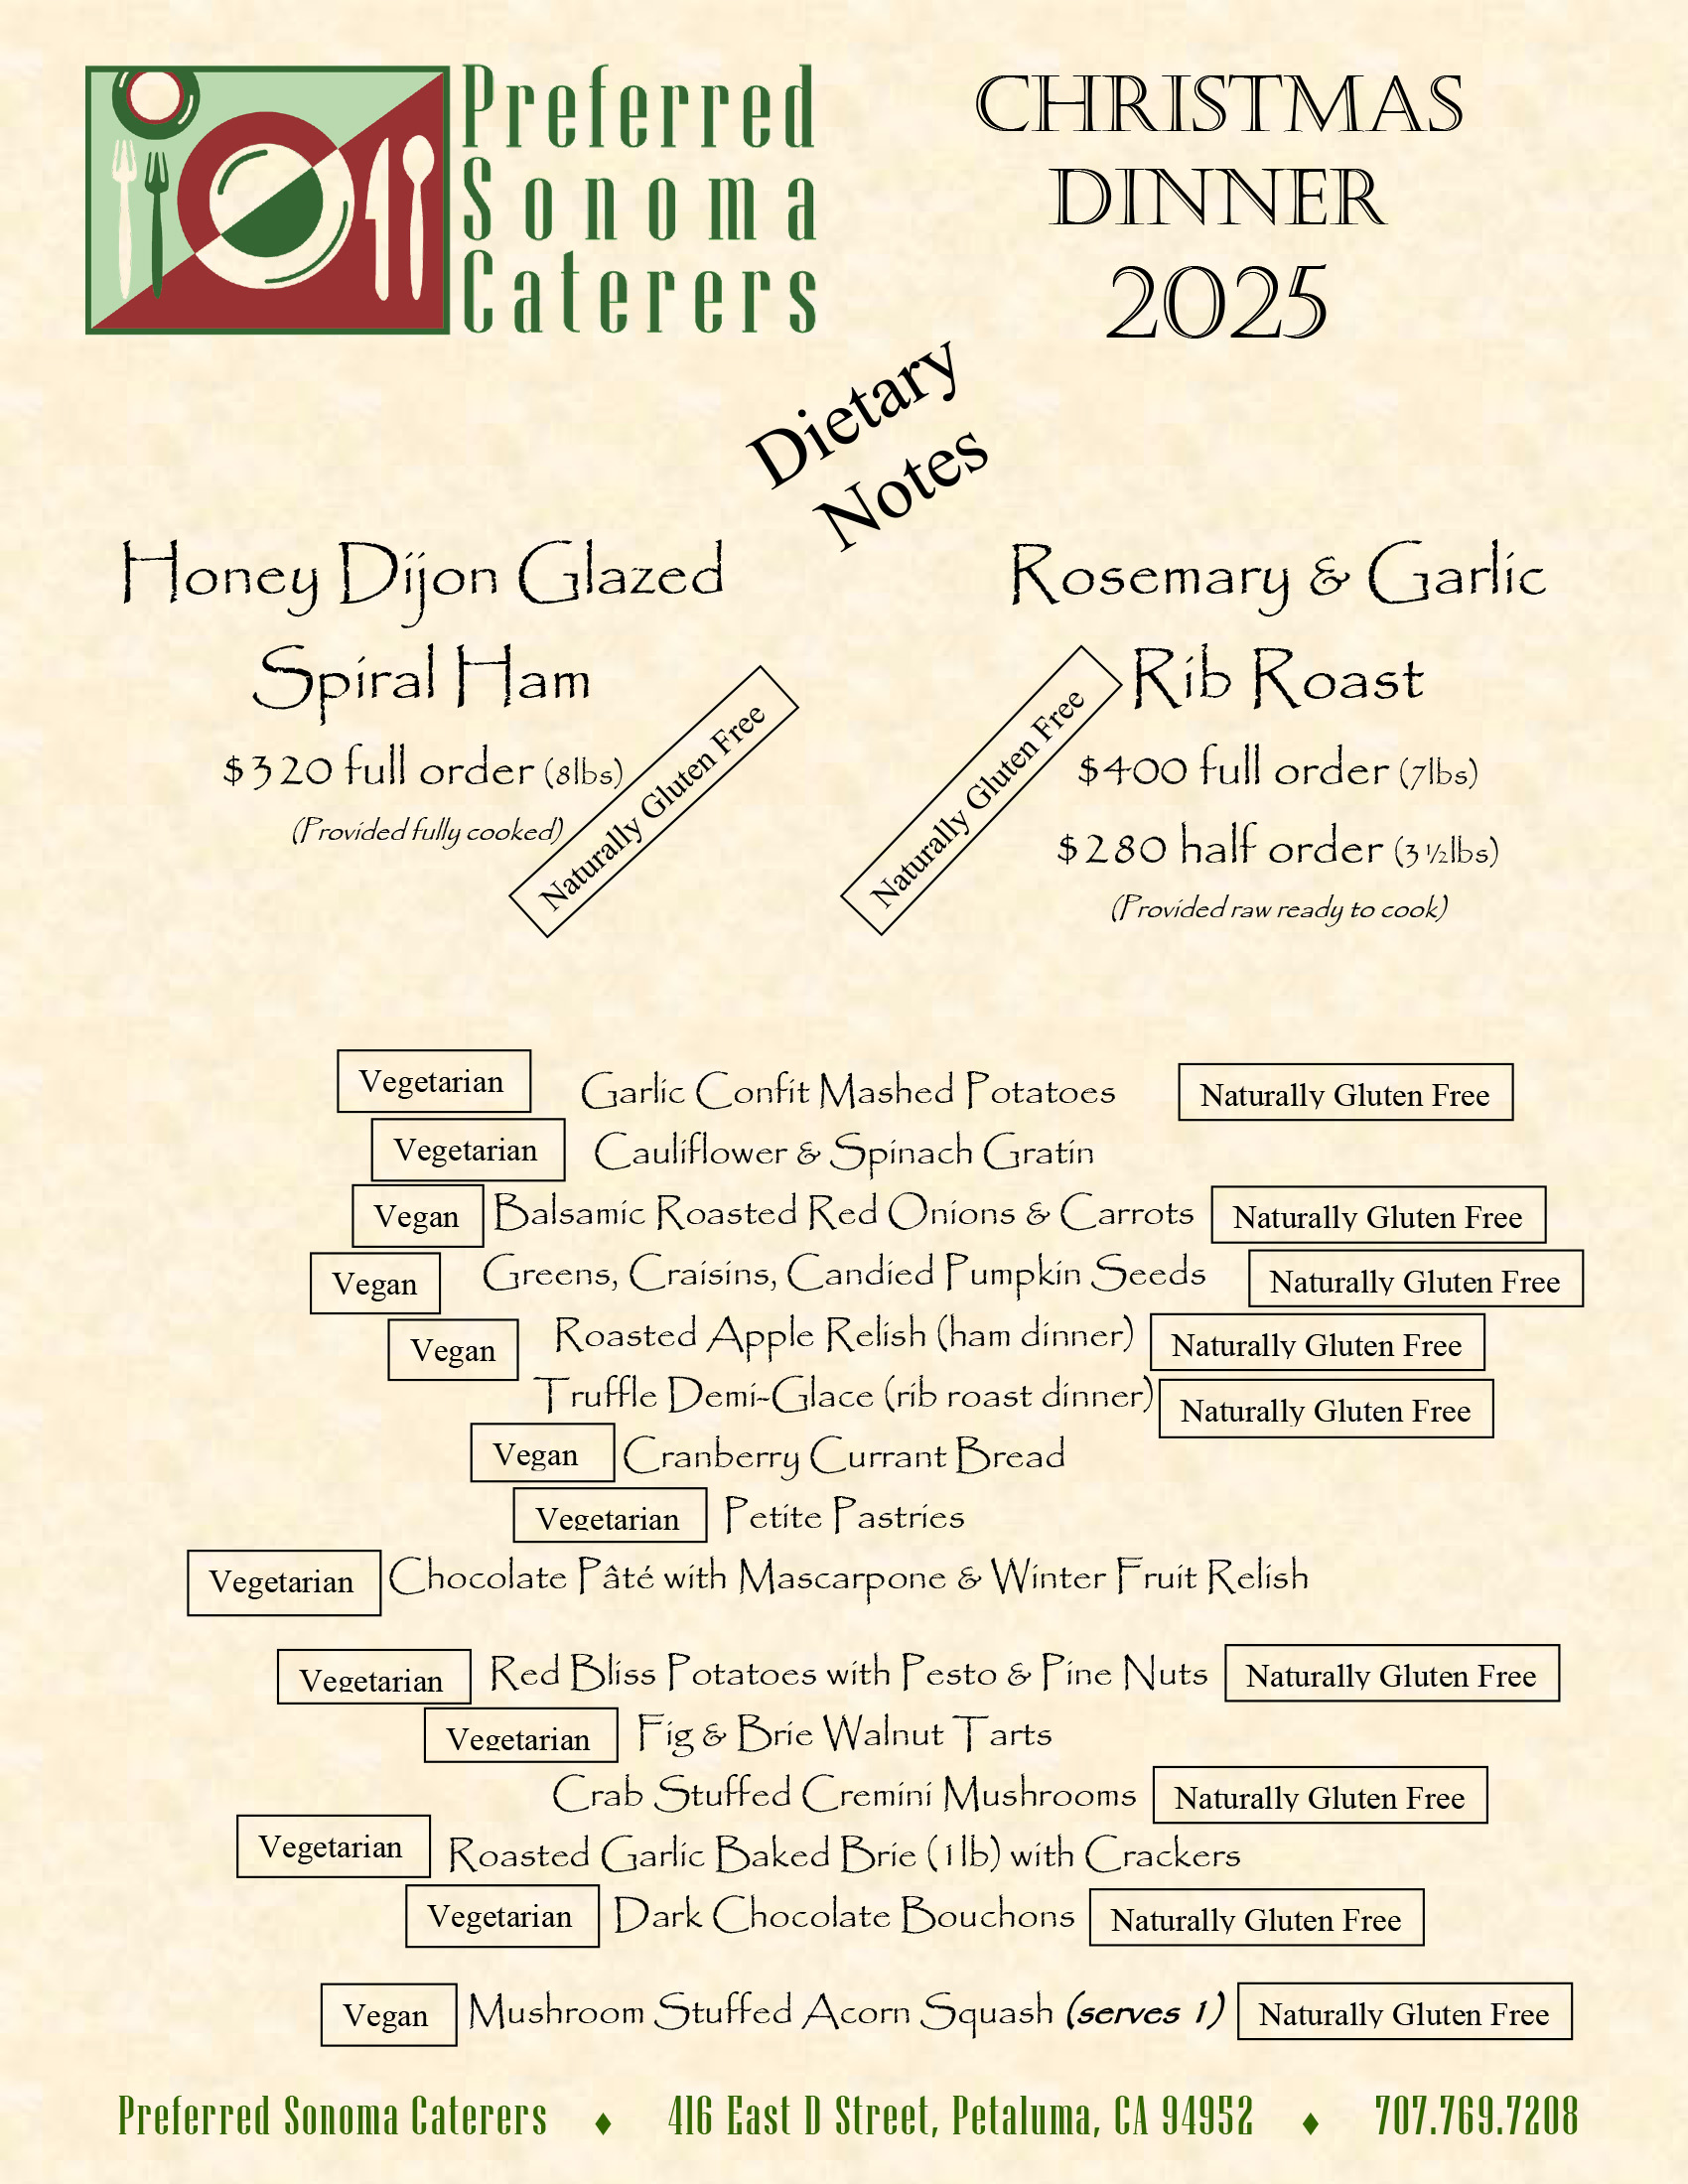 Preferred
Sonoma
Caterers
CHRISTMAS
DINNER
2025
Dietary
Notes
Honey Dijon Glazed
Spiral Ham
$320 full order (8lbs)
(Provided fully cooked)
Naturally Gluten Free
Rosemary & Garlic
Rib Roast
$400 full order (7lbs)
$280 half order (3 ½lbs)
(Provided raw ready to cook)
Naturally Gluten Free
Vegetarian Garlic Confit Mashed Potatoes Naturally Gluten Free
Vegetarian Cauliflower & Spinach Gratin
Vegan Balsamic Roasted Red Onions & Carrots Naturally Gluten Free
Vegan Greens, Craisins, Candied Pumpkin Seeds Naturally Gluten Free
Vegan Roasted Apple Relish (ham dinner) Naturally Gluten Free
Truffle Demi-Glace (rib roast dinner) Naturally Gluten Free
Vegan Cranberry Currant Bread
Vegetarian Petite Pastries
Vegetarian Chocolate Pâté with Mascarpone & Winter Fruit Relish
Vegetarian Red Bliss Potatoes with Pesto & Pine Nuts Naturally Gluten Free
Vegetarian Fig & Brie Walnut Tarts
Crab Stuffed Cremini Mushrooms Naturally Gluten Free
Vegetarian Roasted Garlic Baked Brie (1lb) with Crackers
Vegetarian Dark Chocolate Bouchons Naturally Gluten Free
Vegan Mushroom Stuffed Acorn Squash (serves 1) Naturally Gluten Free
Preferred Sonoma Caterers ♦ 416 East D Street, Petaluma, CA 94952 ♦ 707.769.7208